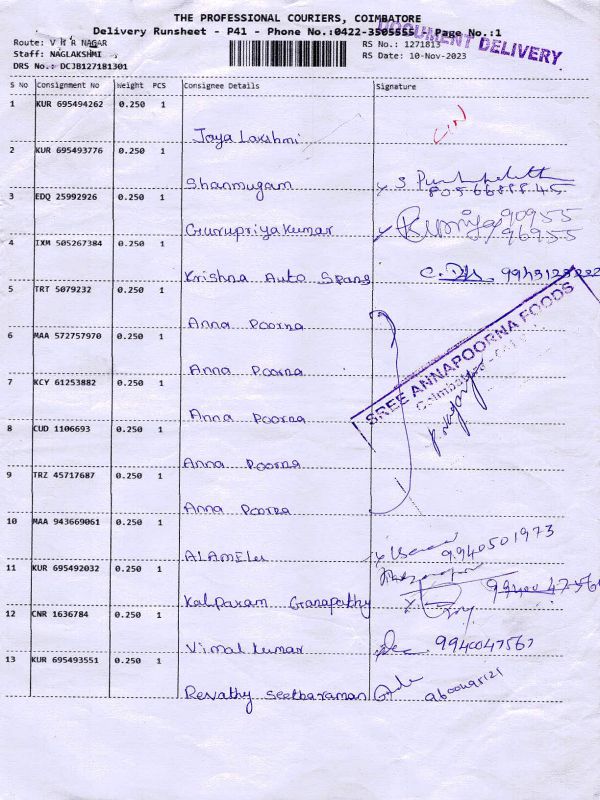 THE PROFESSIONAL COURIERS, COIMBATORE
Delivery Runsheet - P41 - Phone No.:0422-3505555 Page No.:1
DOCUMENT DELIVERY
Route: V M R NAGAR
RS No.: 1271813
Staff: NAGLAKSHMI
RS Date: 10-Nov-2023
DRS No.: DCJB127181301
S No Consignment No Weight PCS Consignee Details Signature
1 KUR 695494262 0.250 1
Jaya Lakshmi
2 KUR 695493776 0.250 1
Shanmugam
3 EDQ 25992926 0.250 1
Gurupriyakumar 90955
96955
4 IXM 505267384 0.250 1
Krishna Auto Spans
5 TRT 5079232 0.250 1
Anna Poorna
6 MAA 572757970 0.250 1
Anna Poorna
7 KCY 61253882 0.250 1
Anna Poorna
8 CUD 1106693 0.250 1
Anna Poorna
9 TRZ 45717687 0.250 1
Anna Poorna
SREE ANNAPOORNA FOODS
10 MAA 943669061 0.250 1
ALAMELu 9940501973
11 KUR 695492032 0.250 1
Kalpavam Granapathy
12 CNR 1636784 0.250 1
Vimal kumar 9940047567
13 KUR 695493551 0.250 1
Revathy Seetharaman